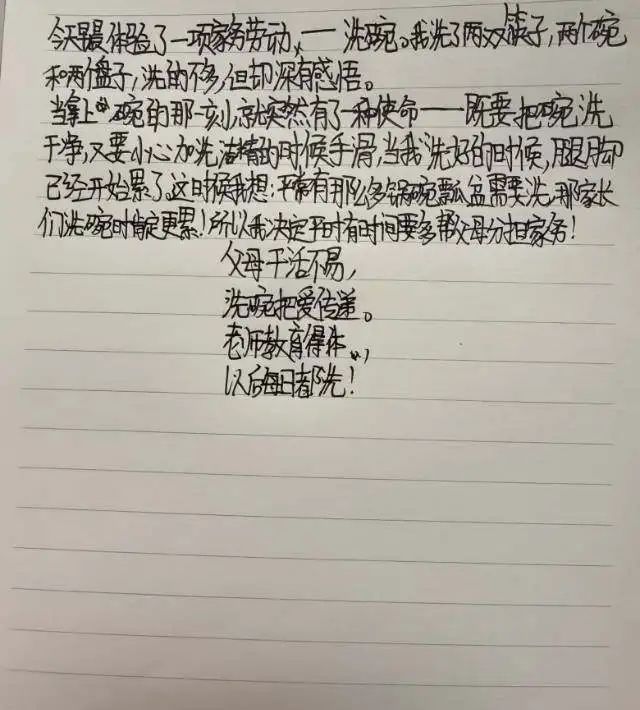 今天最体验了一项家务劳动,——洗碗。我洗了两双筷子,两个碗
和两个盘子,洗的不多,但却深有感悟。
当拿上碗的那一刻,就突然有了一种使命——既要把碗洗
干净,又要小心加洗洁精的时候手滑,当我洗好的时候,腿脚却
已经开始累了,这时候我想:平常有那么多锅碗瓢盆需要洗,那家长
们洗碗时肯定更累!所以我决定平时有时间要多帮父母分担家务!
父母干活不易,
洗碗把爱传递。
老师教育得体,
以后每日都洗!